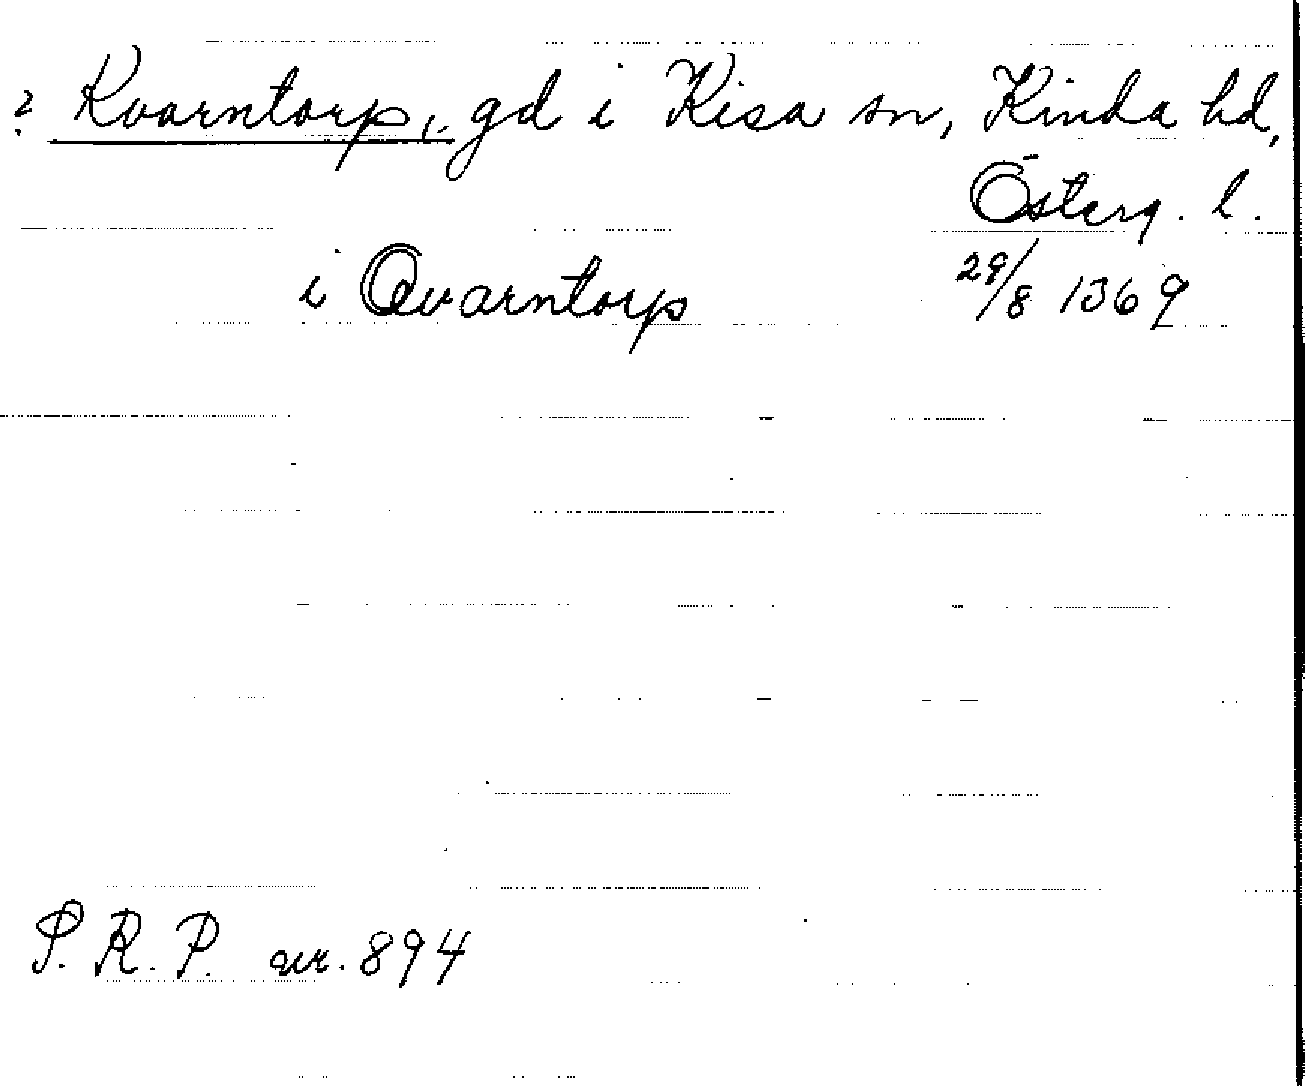 ? Kvarntorp, gd i Kisa sn, Kinda hd,
Österg. l.
i Qvarntorp 29/8 1369
S.R.P. nr. 894